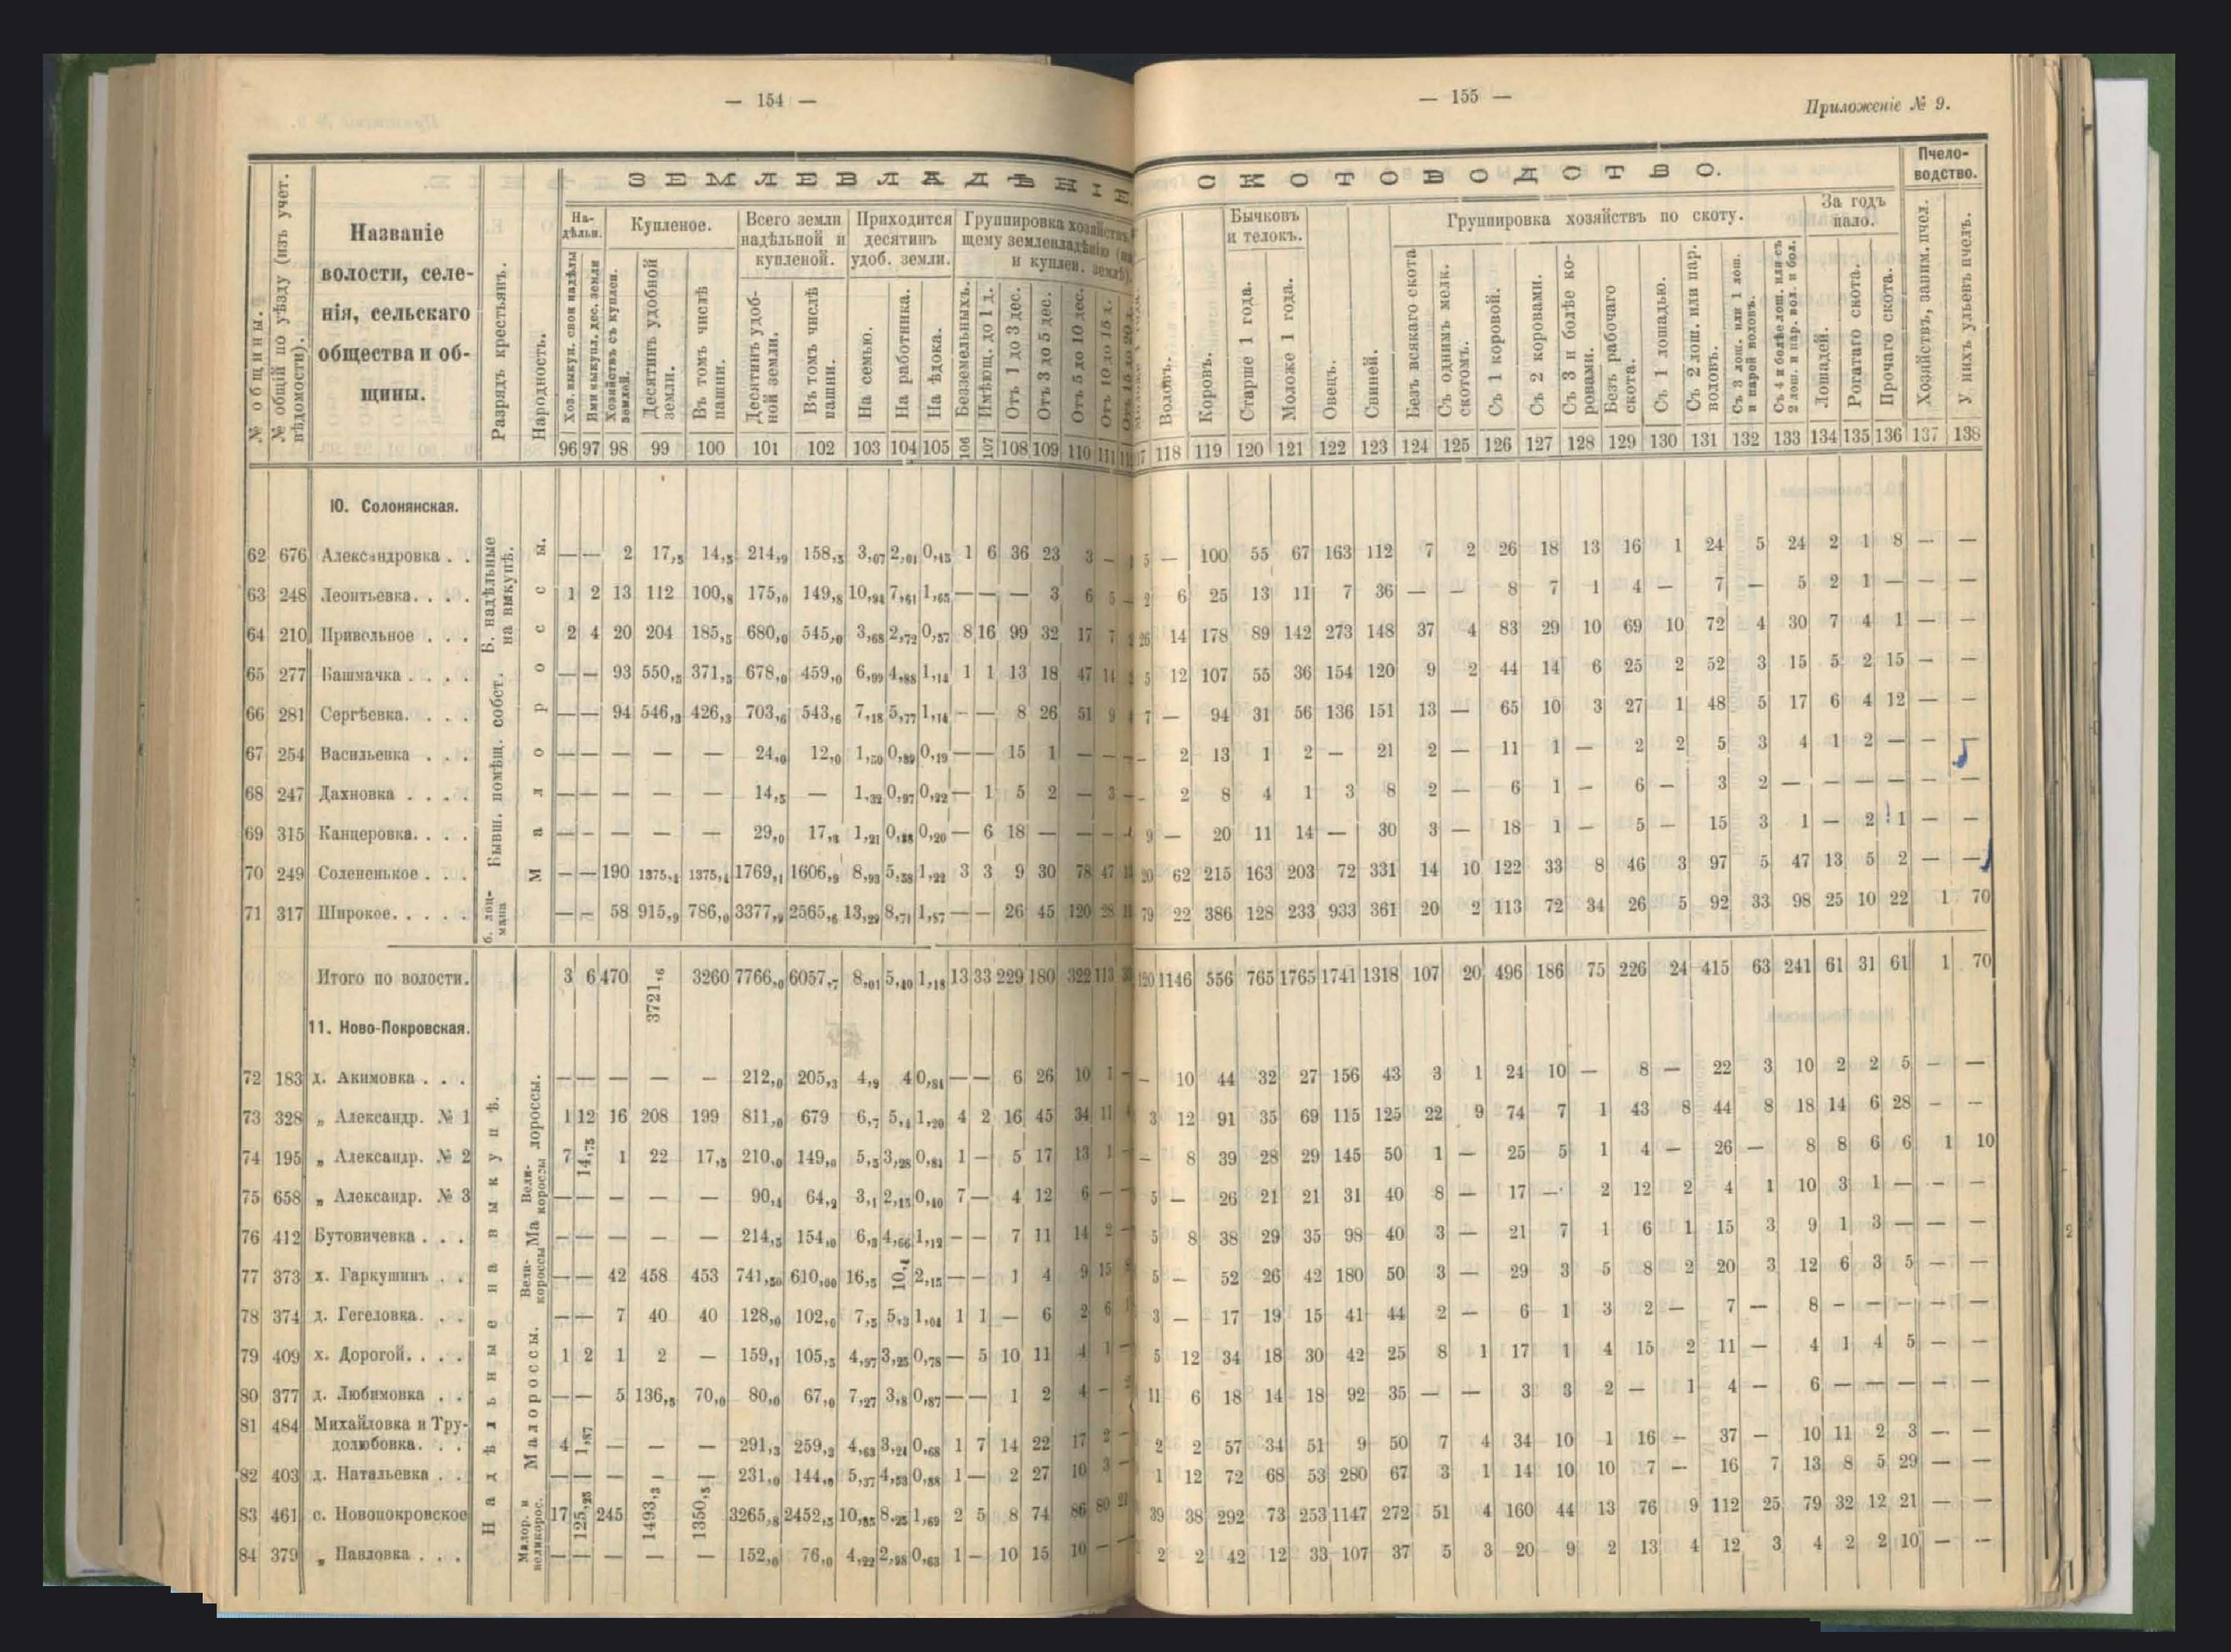 — 154 —
ЗЕМЛЕВЛАДѢНІЕ.
№ общины.
№ общій по уѣзду (изъ учет. вѣдомости).
Названіе
волости, селе-
нія, сельскаго
общества и об-
щины.
Разрядъ крестьянъ.
Народность.
На-
дѣльн.
Купленое.
Всего земли
надѣльной и
купленой.
Приходится
десятинъ
удоб. земли.
Группировка хозяйствъ
щему землевладѣнію
и куплен. землѣ).
Хоз. выкуп. свои надѣлы
Ими выкупл. дес. земли
Хозяйствъ съ куплен.
землей.
Десятинъ удобной
земли.
Въ томъ числѣ
пашни.
Десятинъ удоб-
ной земли.
Въ томъ числѣ
пашни.
На семью.
На работника.
На ѣдока.
Безземельныхъ.
Имѣющ. до 1 д.
Отъ 1 до 3 дес.
Отъ 3 до 5 дес.
Отъ 5 до 10 дес.
Отъ 10 до 15 д.
Отъ 15 до 20 д.
96 97 98 99 100 101 102 103 104 105 106 107 108 109 110 111
Ю. Солонянская.
Б. надѣльные
на выкупѣ.
Бывш. помѣщ. собст.
б. лоц-
мана
Малороссы.
62 676 Александровка . . — — 2 17,5 14,5 214,9 158,5 3,07 2,01 0,45 1 6 36 23 3 —
63 248 Леонтьевка. . . . 1 2 13 112 100,8 175,0 149,8 10,94 7,61 1,65 — — — 3 6 5 —
64 210 Привольное . . . 2 4 20 204 185,5 680,0 545,0 3,68 2,72 0,57 8 16 99 32 17 7
65 277 Башмачка . . . . — — 93 550,5 371,5 678,0 459,0 6,99 4,88 1,14 1 1 13 18 47 14
66 281 Сергѣевка. . . . — — 94 546,3 426,3 703,6 543,6 7,18 5,77 1,14 — — 8 26 51 9
67 254 Васильевка . . . — — — — — 24,0 12,0 1,50 0,89 0,19 — — 15 1 — —
68 247 Дахновка . . . . — — — — — 14,5 — 1,32 0,97 0,22 — 1 5 2 — 3 —
69 315 Канцеровка. . . . — — — — — 29,0 17,3 1,21 0,88 0,20 — 6 18 — — —
70 249 Солененькое . . . — — 190 1375,4 1375,4 1769,1 1606,9 8,93 5,58 1,22 3 3 9 30 78 47
71 317 Широкое. . . . . — — 58 915,9 786,0 3377,9 2565,6 13,29 8,71 1,87 — — 26 45 120 28
Итого по волости. 3 6 470 3721,6 3260 7766,0 6057,7 8,01 5,40 1,18 13 33 229 180 322 113
11. Ново-Покровская.
Надѣльные на выкупѣ.
Ма
лороссы.
Вели-
короссы
Вели-
короссы
Малороссы.
Малор. и
великорос.
72 183 д. Акимовка . . . — — — — — 212,0 205,3 4,9 4 0,84 — — 6 26 10 1 —
73 328 „ Александр. № 1 1 12 16 208 199 811,0 679 6,7 5,4 1,20 4 2 16 45 34 11
74 195 „ Александр. № 2 7 14,75 1 22 17,5 210,0 149,0 5,5 3,28 0,84 1 — 5 17 13 1 —
75 658 „ Александр. № 3 — — — — — 90,4 64,2 3,1 2,15 0,40 7 — 4 12 6 — —
76 412 Бутовичевка . . . — — — — — 214,5 154,0 6,3 4,66 1,12 — — 7 11 14 2 —
77 373 х. Гаркушинъ . . — — 42 458 453 741,50 610,00 16,5 10,4 2,15 — — 1 4 9 15
78 374 д. Гегеловка. . . — — 7 40 40 128,0 102,0 7,5 5,3 1,04 1 1 — 6 2 6
79 409 х. Дорогой. . . . 1 2 1 2 — 159,1 105,5 4,97 3,25 0,78 — 5 10 11 4 1 —
80 377 д. Любимовка . . — — 5 136,5 70,0 80,0 67,0 7,27 3,8 0,87 — — 1 2 4 —
81 484 Михайловка и Тру-
долюбовка. . . 4 1,87 — — — 291,3 259,3 4,63 3,21 0,68 1 7 14 22 17 2 —
82 403 д. Натальевка . . — — — — — 231,0 144,0 5,37 4,53 0,88 1 — 2 27 10 3 —
83 461 с. Новопокровское 17 125,25 245 1493,3 1350,5 3265,8 2452,5 10,85 8,25 1,69 2 5 8 74 86 80 21
84 379 „ Павловка . . . — — — — — 152,0 76,0 4,22 2,98 0,63 1 — 10 15 10 — —
— 155 —
Приложеніе № 9.
СКОТОВОДСТВО.
Пчело-
водство.
Бычковъ
и телокъ.
Группировка хозяйствъ по скоту.
За годъ
пало.
Воловъ.
Коровъ.
Старше 1 года.
Моложе 1 года.
Овецъ.
Свиней.
Безъ всякаго скота
Съ однимъ мелк.
скотомъ.
Съ 1 коровой.
Съ 2 коровами.
Съ 3 и болѣе ко-
ровами.
Безъ рабочаго
скота.
Съ 1 лошадью.
Съ 2 лош. или пар.
воловъ.
Съ 3 лош. или 1 лош.
и парой воловъ.
Съ 4 и болѣе лош. или съ
2 лош. и пар. вол. и бол.
Лошадей.
Рогатаго скота.
Прочаго скота.
Хозяйствъ, заним. пчел.
У нихъ ульевъ пчелъ.
118 119 120 121 122 123 124 125 126 127 128 129 130 131 132 133 134 135 136 137 138
5 — 100 55 67 163 112 7 2 26 18 13 16 1 24 5 24 2 1 8 — —
2 6 25 13 11 7 36 — — 8 7 1 4 — 7 — 5 2 1 — — —
26 14 178 89 142 273 148 37 4 83 29 10 69 10 72 4 30 7 4 1 — —
5 12 107 55 36 154 120 9 2 44 14 6 25 2 52 3 15 5 2 15 — —
7 — 94 31 56 136 151 13 — 65 10 3 27 1 48 5 17 6 4 12 — —
– 2 13 1 2 — 21 2 — 11 1 — 2 2 5 3 4 1 2 — — —
– 2 8 4 1 3 8 2 — 6 1 — 6 — 3 2 — — — — — —
9 — 20 11 14 — 30 3 — 18 1 — 5 — 15 3 1 — 2 1 — —
20 62 215 163 203 72 331 14 10 122 33 8 46 3 97 5 47 13 5 2 — —
79 22 386 128 233 933 361 20 2 113 72 34 26 5 92 33 98 25 10 22 1 70
120 1146 556 765 1765 1741 1318 107 20 496 186 75 226 24 415 63 241 61 31 61 1 70
— 10 44 32 27 156 43 3 1 24 10 — 8 — 22 3 10 2 2 5 — —
3 12 91 35 69 115 125 22 9 74 7 1 43 8 44 8 18 14 6 28 — —
— 8 39 28 29 145 50 1 — 25 5 1 4 — 26 — 8 8 6 6 1 10
5 — 26 21 21 31 40 8 — 17 — 2 12 2 4 1 10 3 1 — — —
5 8 38 29 35 98 40 3 — 21 7 1 6 1 15 3 9 1 3 — — —
5 — 52 26 42 180 50 3 — 29 3 5 8 2 20 3 12 6 3 5 — —
3 — 17 19 15 41 44 2 — 6 1 3 2 — 7 — 8 — — — — —
5 12 34 18 30 42 25 8 1 17 1 4 15 2 11 — 4 1 4 5 — —
11 6 18 14 18 92 35 — — 3 3 2 — 1 4 — 6 — — — — —
2 2 57 34 51 9 50 7 4 34 10 1 16 — 37 — 10 11 2 3 — —
1 12 72 68 53 280 67 3 1 14 10 10 7 — 16 7 13 8 5 29 — —
39 38 292 73 253 1147 272 51 4 160 44 13 76 9 112 25 79 32 12 21 — —
2 2 42 12 33 107 37 5 3 20 9 2 13 4 12 3 4 2 2 10 — —